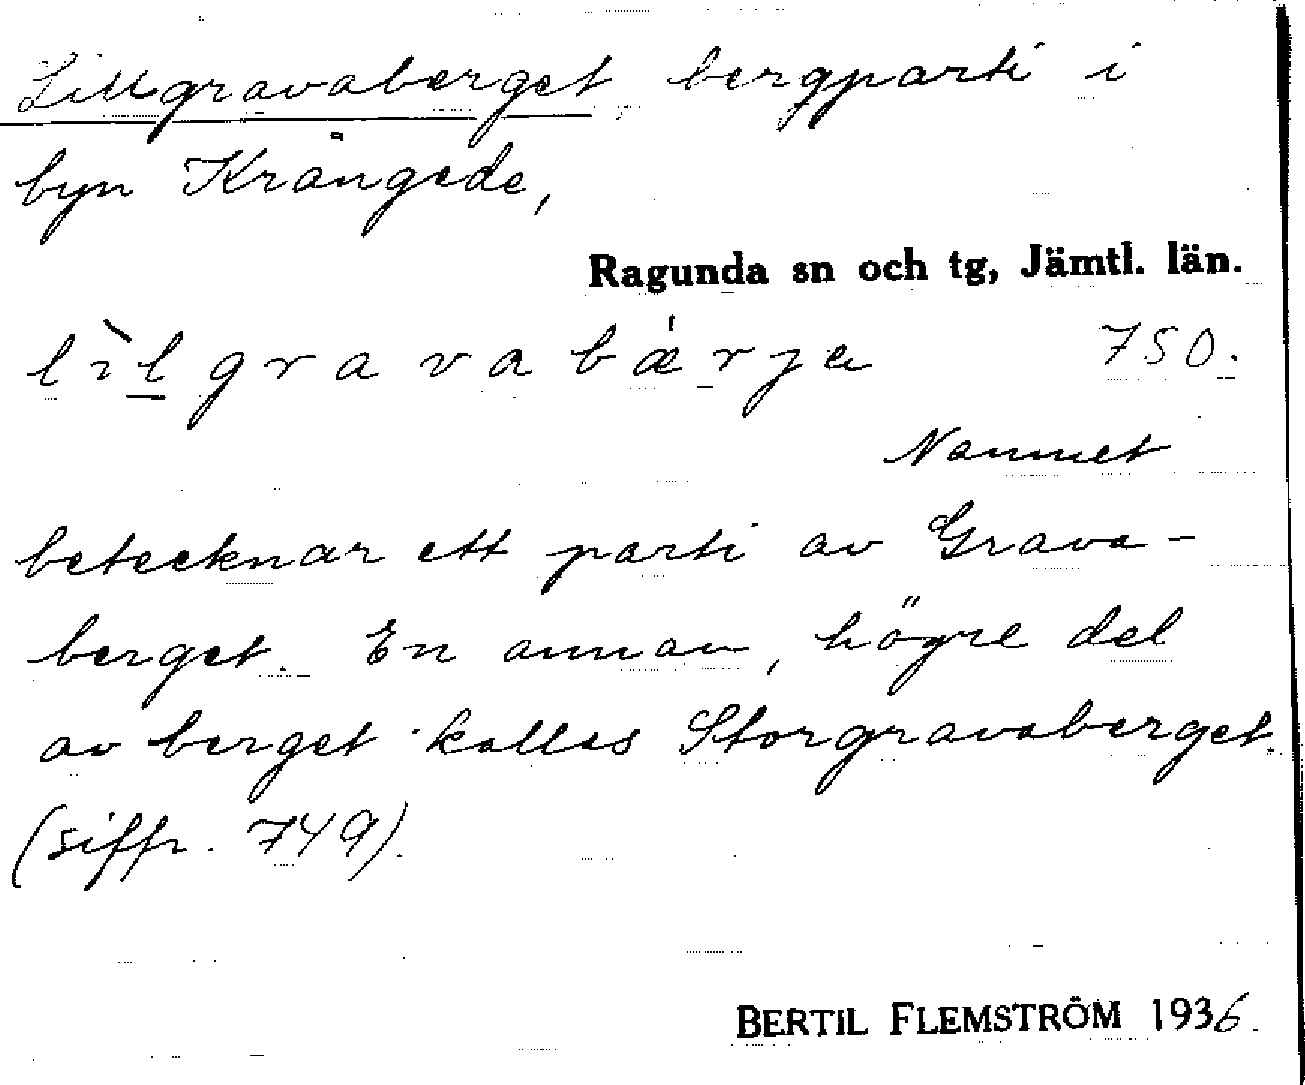 Lillgravaberget bergparti i
byn Krångede,
Ragunda sn och tg, Jämtl. län.
lìlgravabǽrjα 750.
Namnet
betecknar ett parti av Grava-
berget. En annan, högre del
av berget kallas Storgravaberget
(siffr. 749).
BERTIL FLEMSTRÖM 1936.